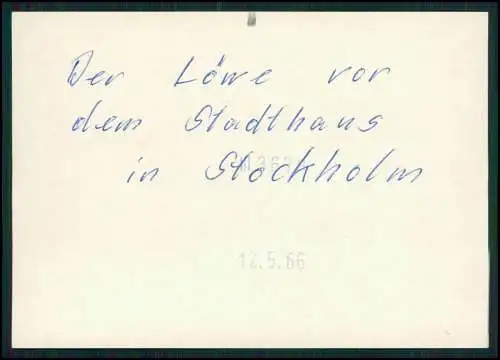 Der Löwe vor
dem Stadthaus
in Stockholm
12.5.66